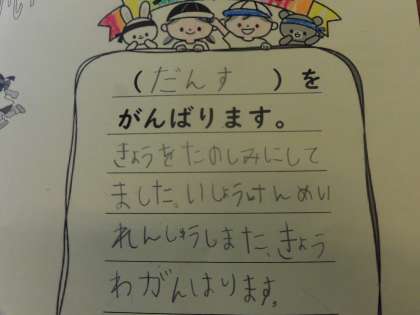 (だんす)を
がんばります。
きょうをたのしみにして
ました。いしょうけんめい
れんしゅうしまた、きょう
わがんはります。